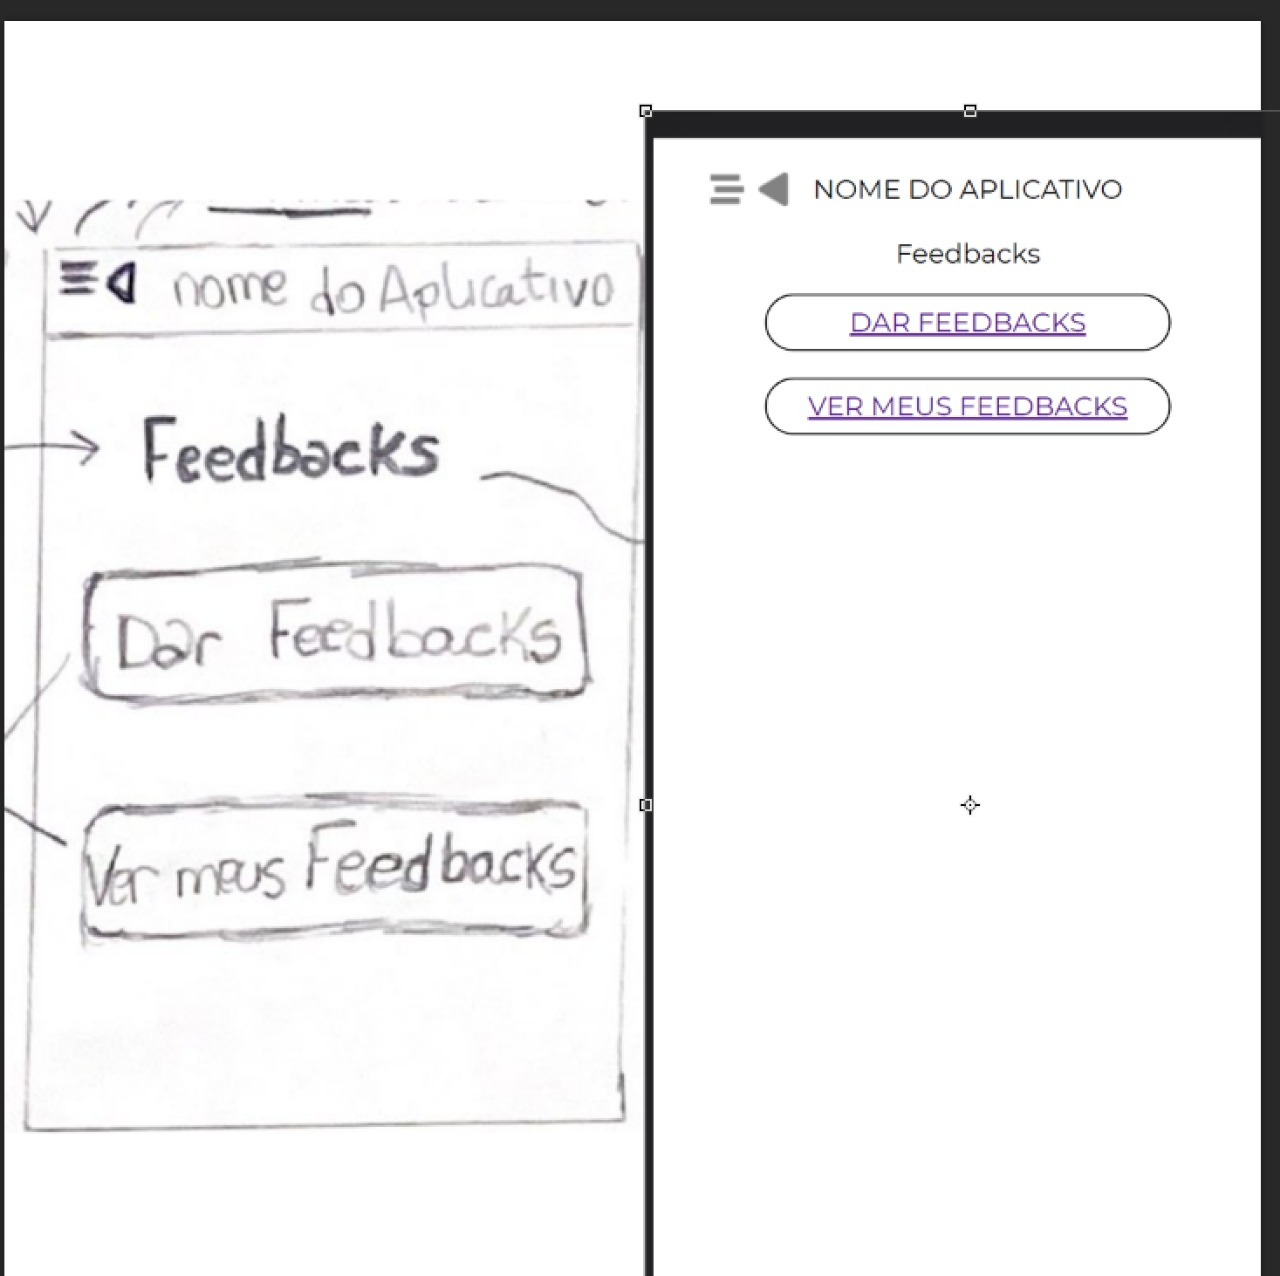 nome do Aplicativo
Feedbacks
Dar Feedbacks
Ver meus Feedbacks
NOME DO APLICATIVO
Feedbacks
DAR FEEDBACKS
VER MEUS FEEDBACKS